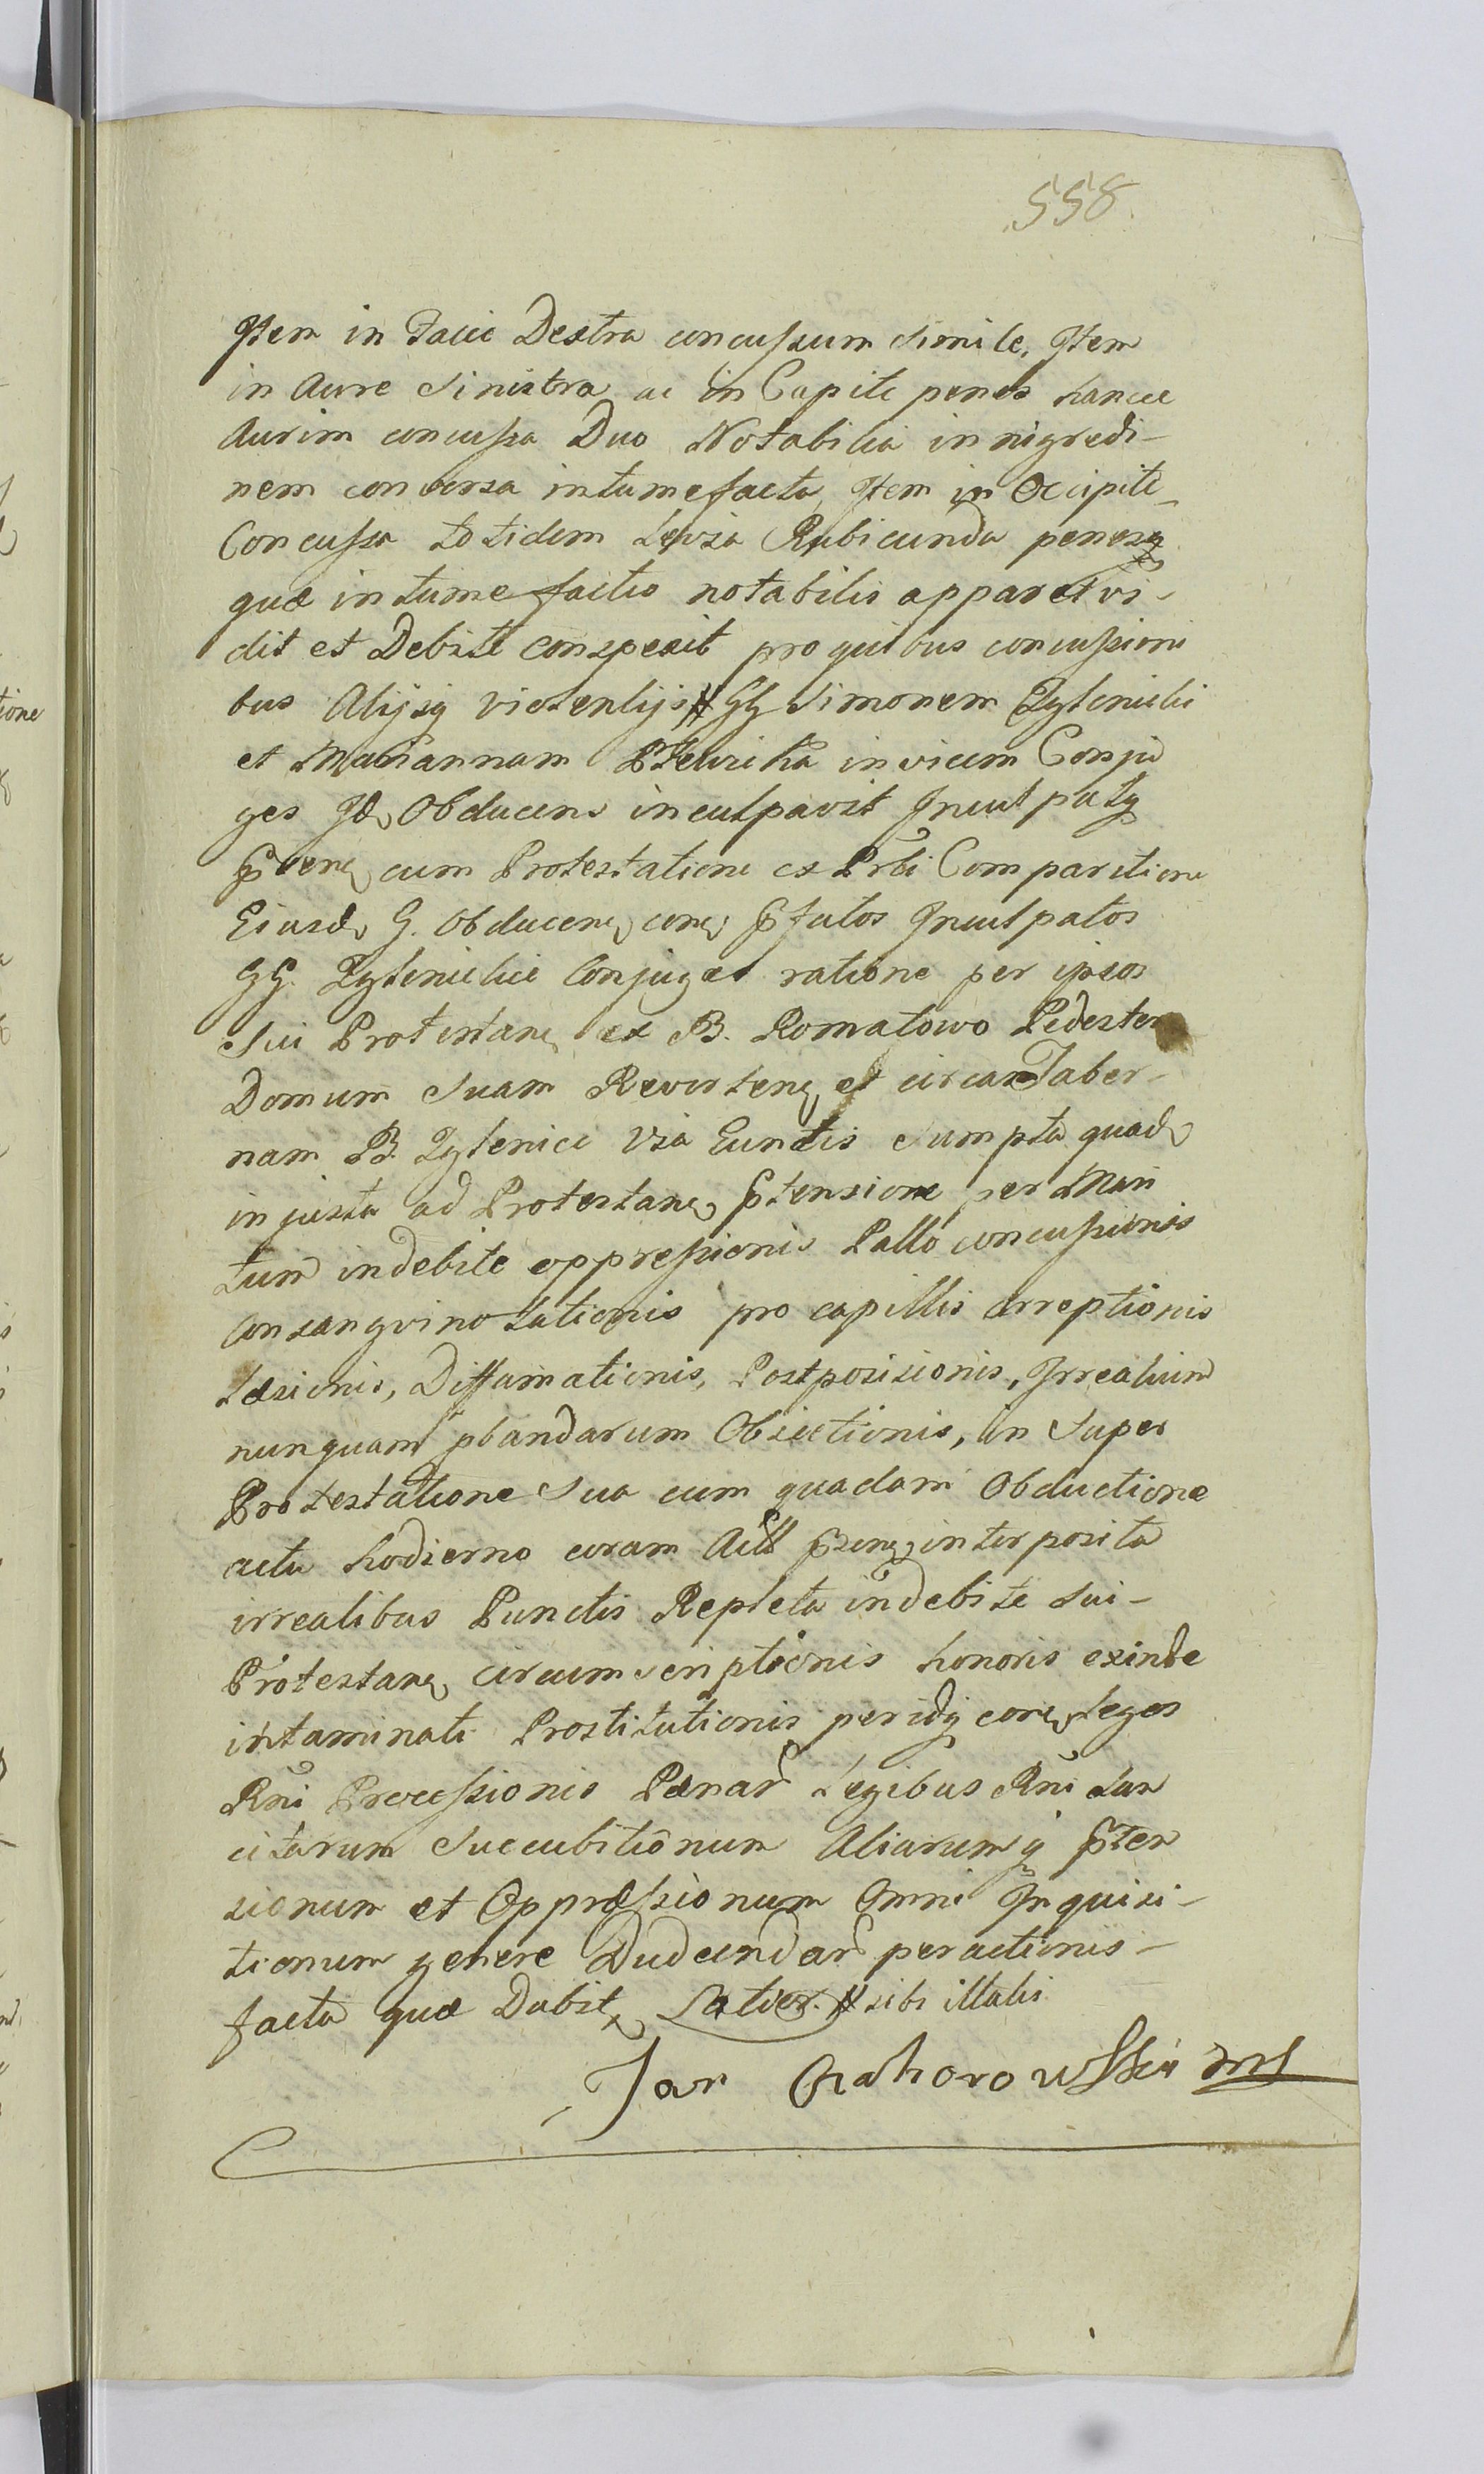 558.
Item in Facie Dextra concussum simile, Item
in Aure Sinistra ac in Capite penes hancce
Aurim concussa Duo Notabilia in nigredi-
nem conversa intumefacta, Item in Occipite
Concussa totidem Levia Rubicunda penesq
quæ intumefactio notabilis apparet vi-
dit et Debite conspexit pro quibus concussioni
bus Alijsq violentijs # GG Simonem Zyteniecki
et Mariannam invicem Conju
ges Jd Obducens inculpavit Inculpatq
Pten cum Protestatione ex Prti Comparitione
Eiusd G. Obducen con Pfatos Inculpatos
GG. Zytenieckie Conjuges ratione per ipsos
Sui Protestan ex B. Romatowo Pedester
Domum Suam Reverten et circa Taber-
nam B. Zytenice Via Euntis Sumpta quad
injusta ad Protestan Ptensione per Mari
tum indebite oppressionis Pallo concussionis
Consangvinolationis pro capillis arreptionis
Læsionis, Diffamationis, Postposisionis, Irrealium
nunquam pbandarum Obiectionis, in Super
Protestatione Sua cum quadam Obductione
actu hodierno coram Actis Psen interposita
irrealibus Punctis Repleta indebite Sui-
Protestan circumscriptionis honoris exinde
intaminati Prostitutionis per idq con Leges
Rni Processionis Pænar Legibus Rni San
citarum Succubitionum Aliarumq Pten
sionum et Oppræssionum Omni Inquisi-
tionum genere Duducendar peractionis-
facta quæ Dabit Latior. # sibi illatis
Jan mp